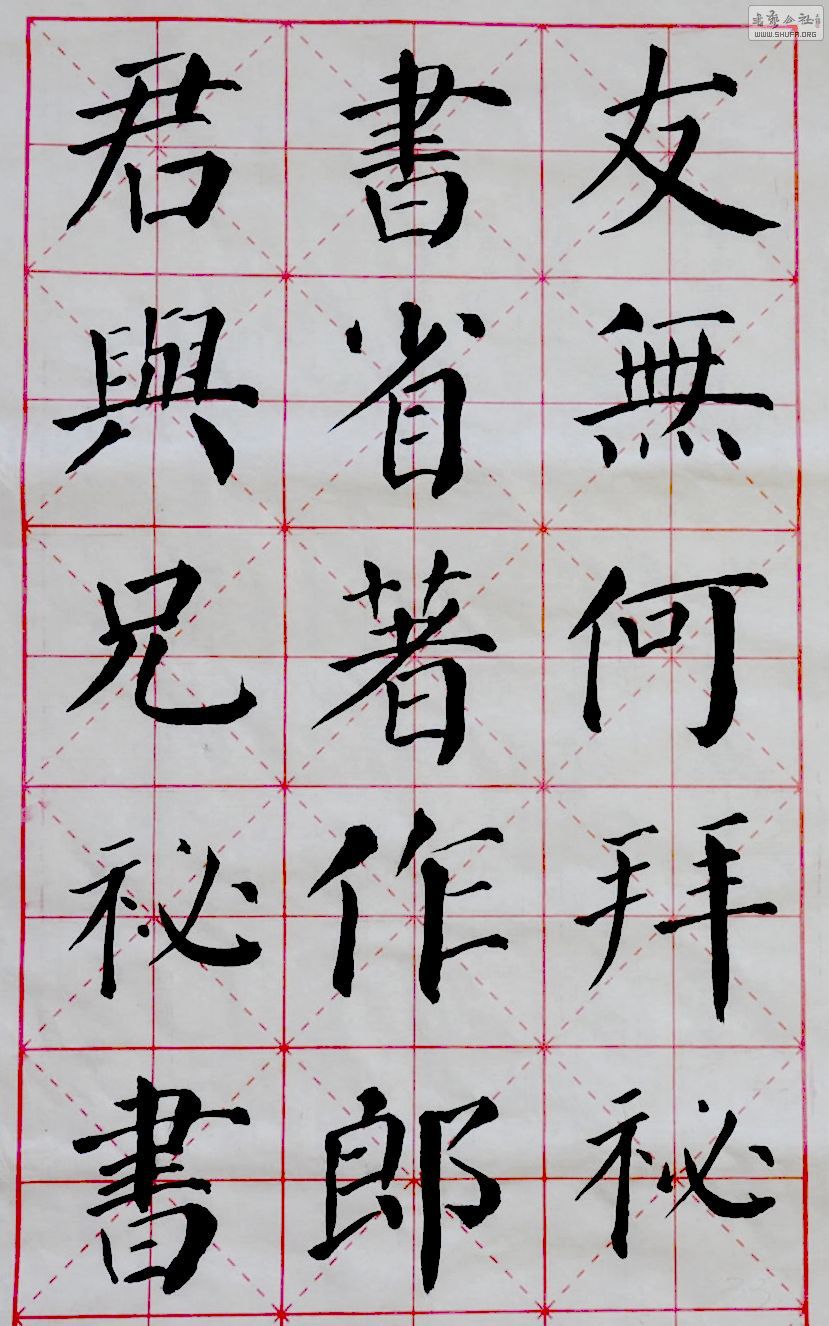 友無何拜祕
書省著作郎
君與兄祕書
書藝公社
WWW.SHUFA.ORG